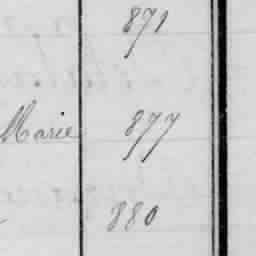 871
Marie 877
880